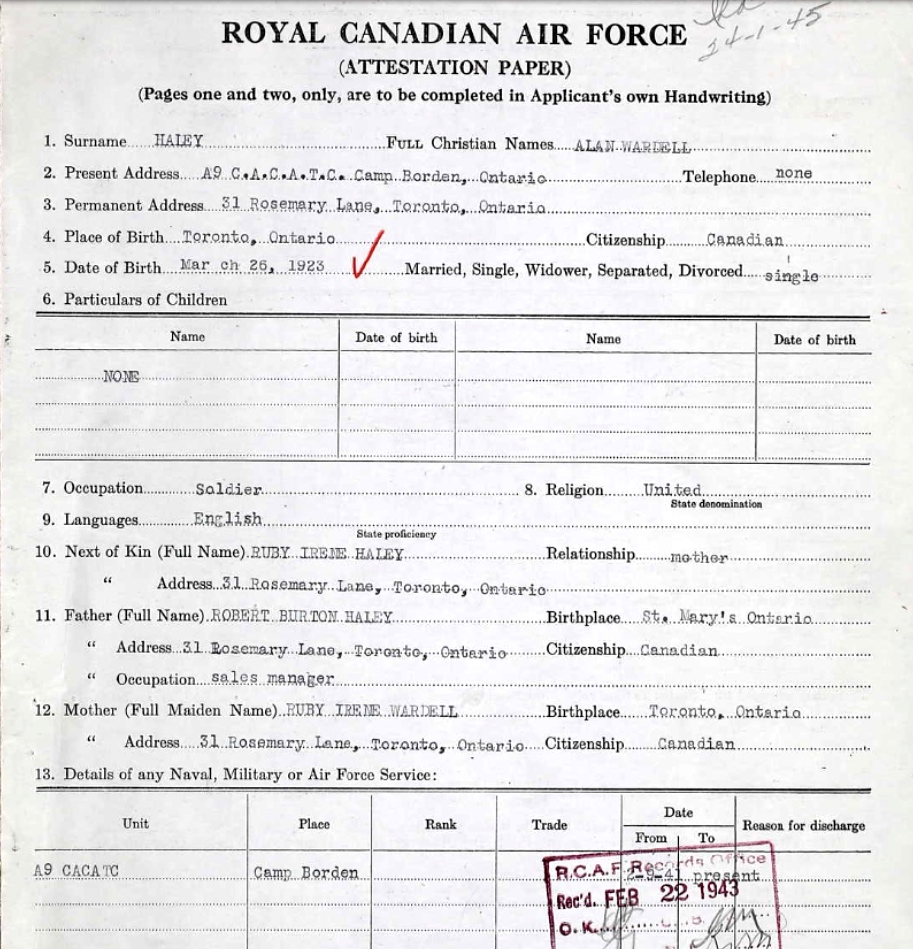 24-1-45
ROYAL CANADIAN AIR FORCE
(ATTESTATION PAPER)
(Pages one and two, only, are to be completed in Applicant's own Handwriting)
1. Surname HALEY FULL Christian Names ALAN WARDELL
2. Present Address A9 C.A.C.A.T.C. Camp Borden, Ontario Telephone none
3. Permanent Address 31 Rosemary Lane, Toronto, Ontario
4. Place of Birth Toronto, Ontario Citizenship Canadian
5. Date of Birth Mar ch 26, 1923 Married, Single, Widower, Separated, Divorced single
6. Particulars of Children
Name Date of birth Name Date of birth
NONE
7. Occupation Soldier 8. Religion United
State denomination
9. Languages English
State proficiency
10. Next of Kin (Full Name) RUBY IRENE HALEY Relationship mother
" Address 31 Rosemary Lane, Toronto, Ontario
11. Father (Full Name) ROBERT BURTON HALEY Birthplace St. Mary's Ontario
" Address 31 Rosemary Lane, Toronto, Ontario Citizenship Canadian
" Occupation sales manager
12. Mother (Full Maiden Name) RUBY IRENE WARDELL Birthplace Toronto, Ontario
" Address 31 Rosemary Lane, Toronto, Ontario Citizenship Canadian
13. Details of any Naval, Military or Air Force Service:
Unit Place Rank Trade Date Reason for discharge
From To
A9 CACATC Camp Borden present
R.C.A.F. Records Office
Rec'd. FEB 22 1943
O.K.